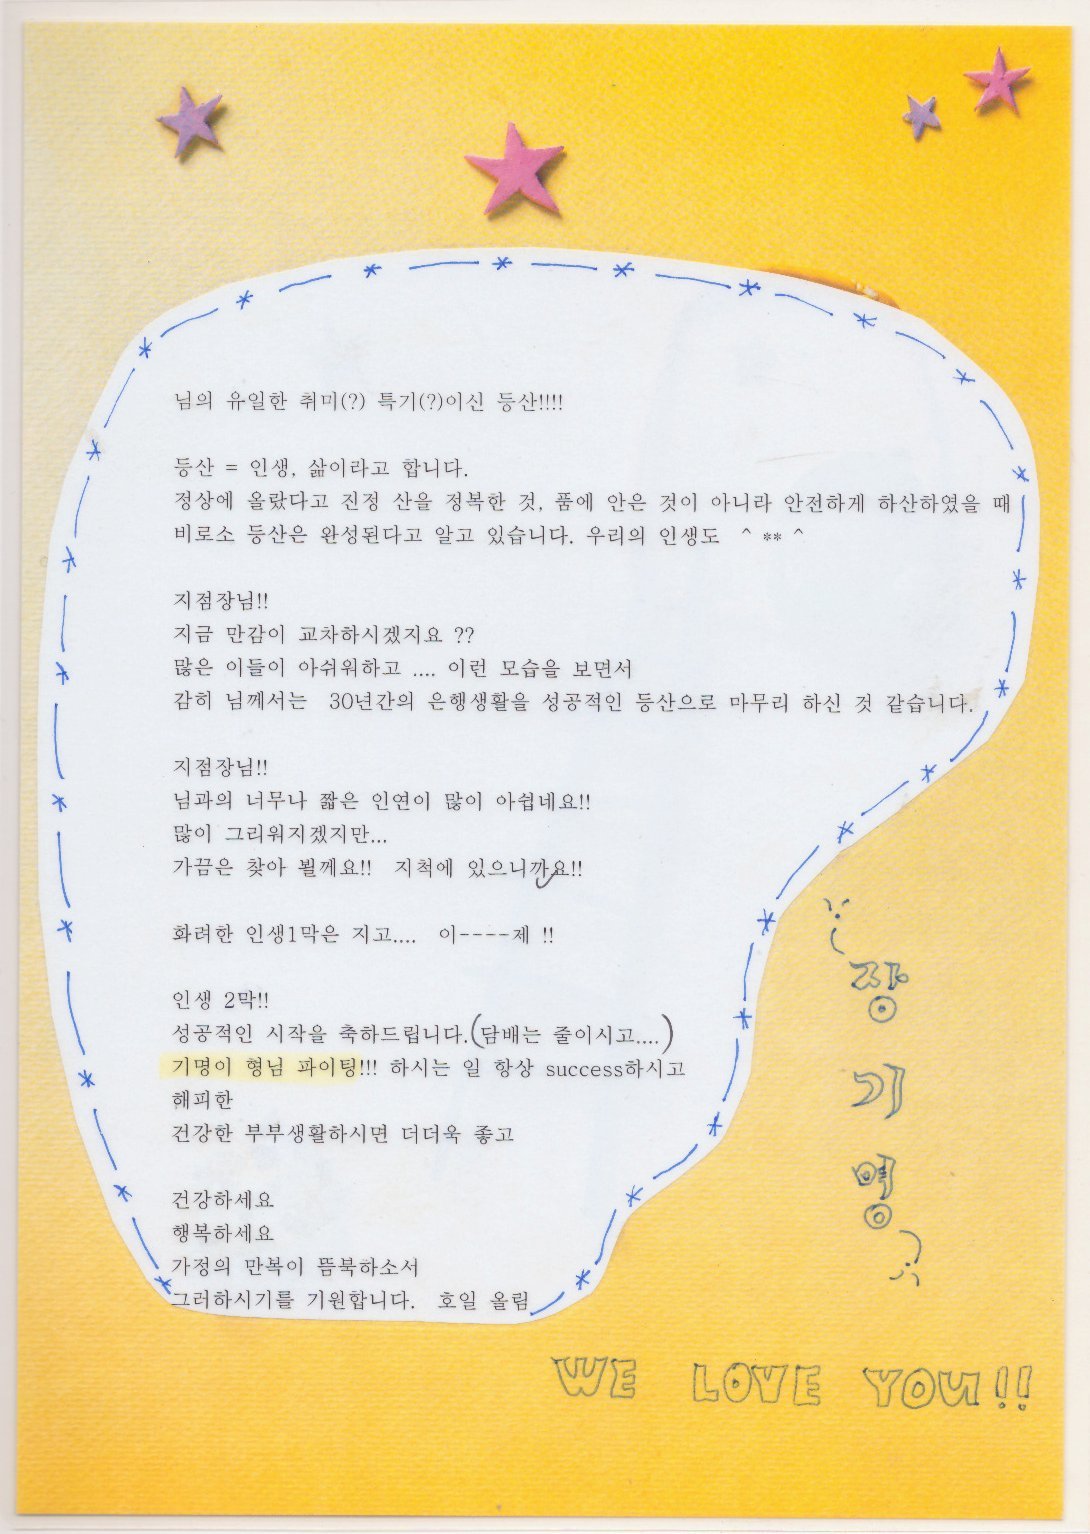 님의 유일한 취미(?) 특기(?)이신 등산!!!!
등산 = 인생, 삶이라고 합니다.
정상에 올랐다고 진정 산을 정복한 것, 품에 안은 것이 아니라 안전하게 하산하였을 때
비로소 등산은 완성된다고 알고 있습니다. 우리의 인생도 ^ ** ^
지점장님!!
지금 만감이 교차하시겠지요 ??
많은 이들이 아쉬워하고 .... 이런 모습을 보면서
감히 님께서는 30년간의 은행생활을 성공적인 등산으로 마무리 하신 것 같습니다.
지점장님!!
님과의 너무나 짧은 인연이 많이 아쉽네요!!
많이 그리워지겠지만...
가끔은 찾아 뵐께요!! 지척에 있으니까요!!
화려한 인생1막은 지고.... 이----제 !!
인생 2막!!
성공적인 시작을 축하드립니다.(담배는 줄이시고....)
기명이 형님 파이팅!!! 하시는 일 항상 success하시고
해피한
건강한 부부생활하시면 더더욱 좋고
건강하세요
행복하세요
가정의 만복이 뜸북하소서
그러하시기를 기원합니다. 호일 올림
장
기
명
WE LOVE YOU!!